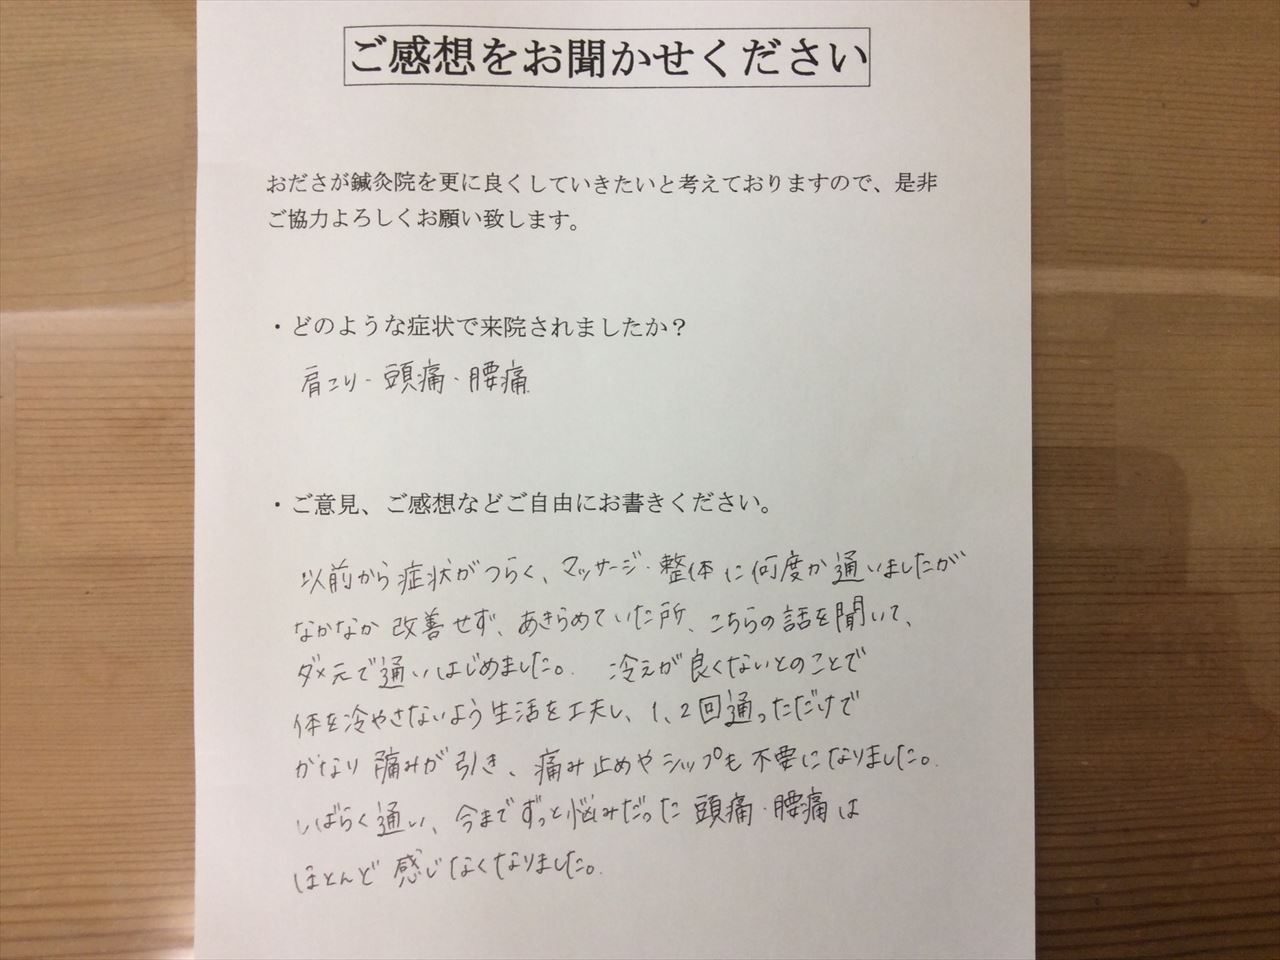 ご感想をお聞かせください
おださが鍼灸院を更に良くしていきたいと考えておりますので、是非
ご協力よろしくお願い致します。
・どのような症状で来院されましたか？
肩こり・頭痛・腰痛
・ご意見、ご感想などご自由にお書きください。
以前から症状がつらく、マッサージ・整体に何度か通いましたが
なかなか改善せず、あきらめていた所、こちらの話を聞いて、
ダメ元で通いはじめました。冷えが良くないとのことで
体を冷やさないよう生活を工夫し、1、2回通っただけで
かなり痛みが引き、痛み止めやシップも不要になりました。
しばらく通い、今までずっと悩みだった頭痛・腰痛は
ほとんど感じなくなりました。